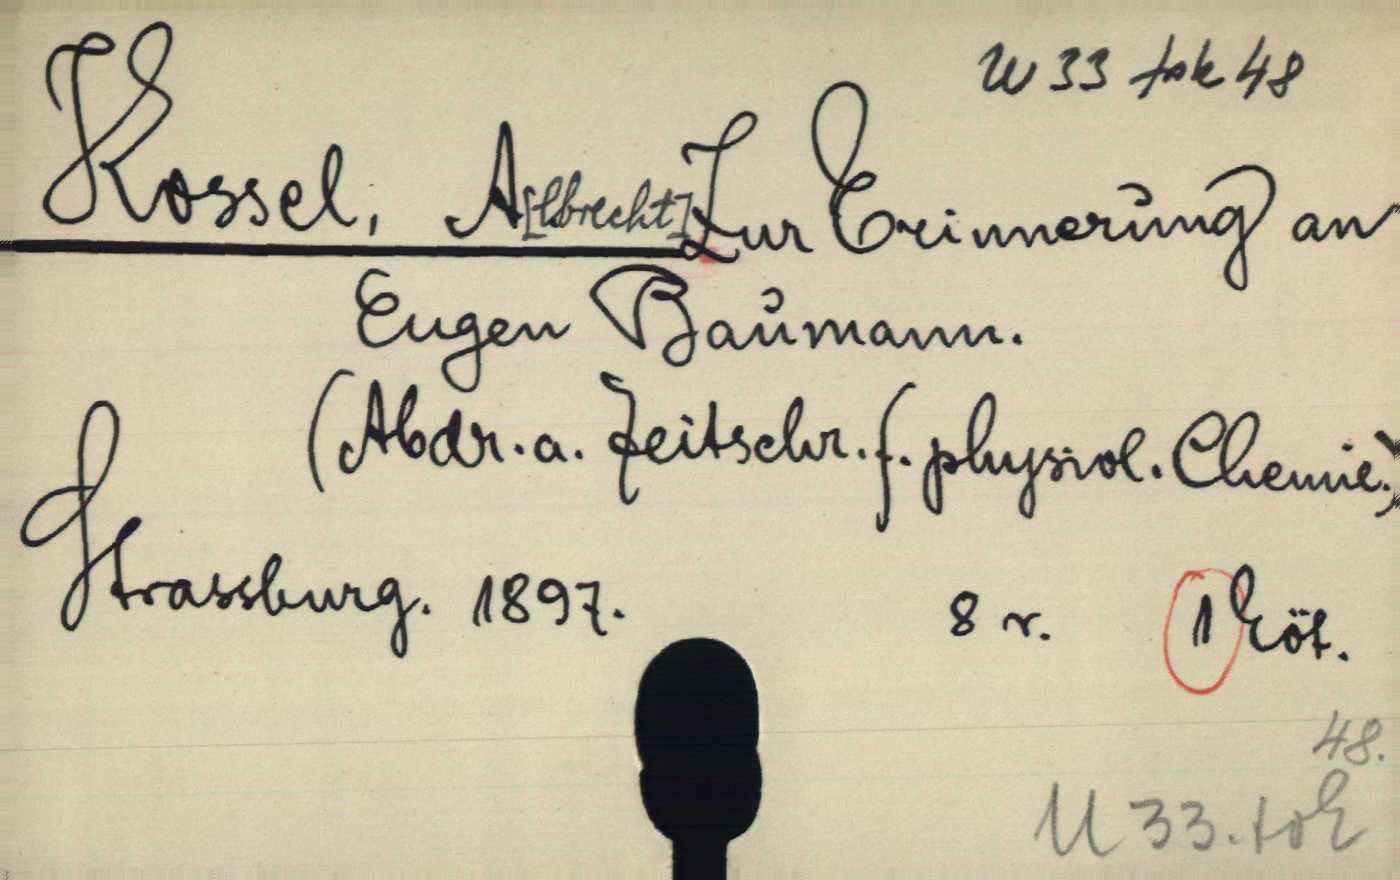 U 33 tok 48
Kossel, A[lbrecht] Zur Erinnerung an
Eugen Baumann.
(Abdr. a. Zeitschr. f. physiol. Chemie.)
Strassburg. 1897. 8 r. 1 köt.
48.
U 33. tok